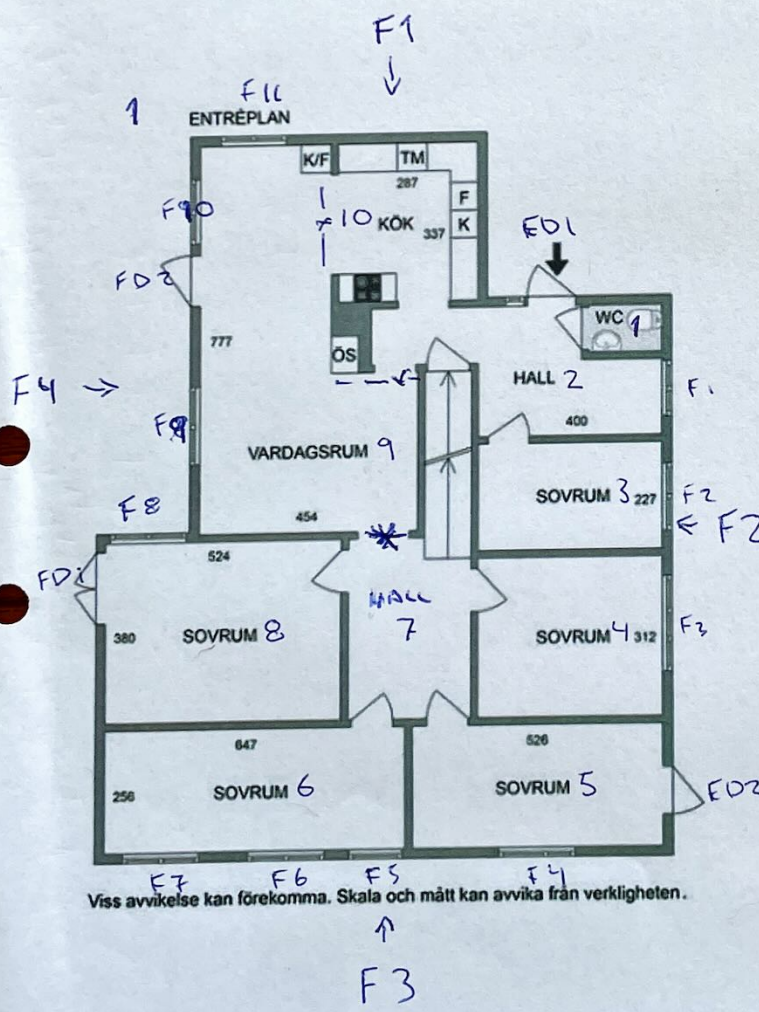 F1
F11
1
ENTRÉPLAN
K/F
TM
287
F
F10
10
KÖK
K
337
ED1
FD2
WC
1
777
ÖS
F4
HALL 2
F1
400
F9
VARDAGSRUM 9
SOVRUM 3
227
F2
F2
F8
454
524
FD1
HALL
7
380
SOVRUM 8
SOVRUM 4
312
F3
647
526
256
SOVRUM 6
SOVRUM 5
ED2
F7
F6
F5
F4
Viss avvikelse kan förekomma. Skala och mått kan avvika från verkligheten.
F3